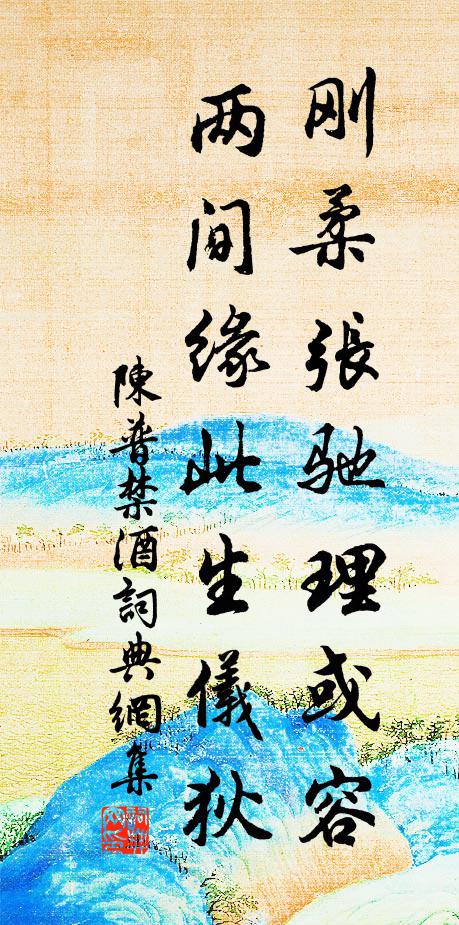 刚柔張驰理或容
两间缘此生儀狄
陳普禁酒詞典網集